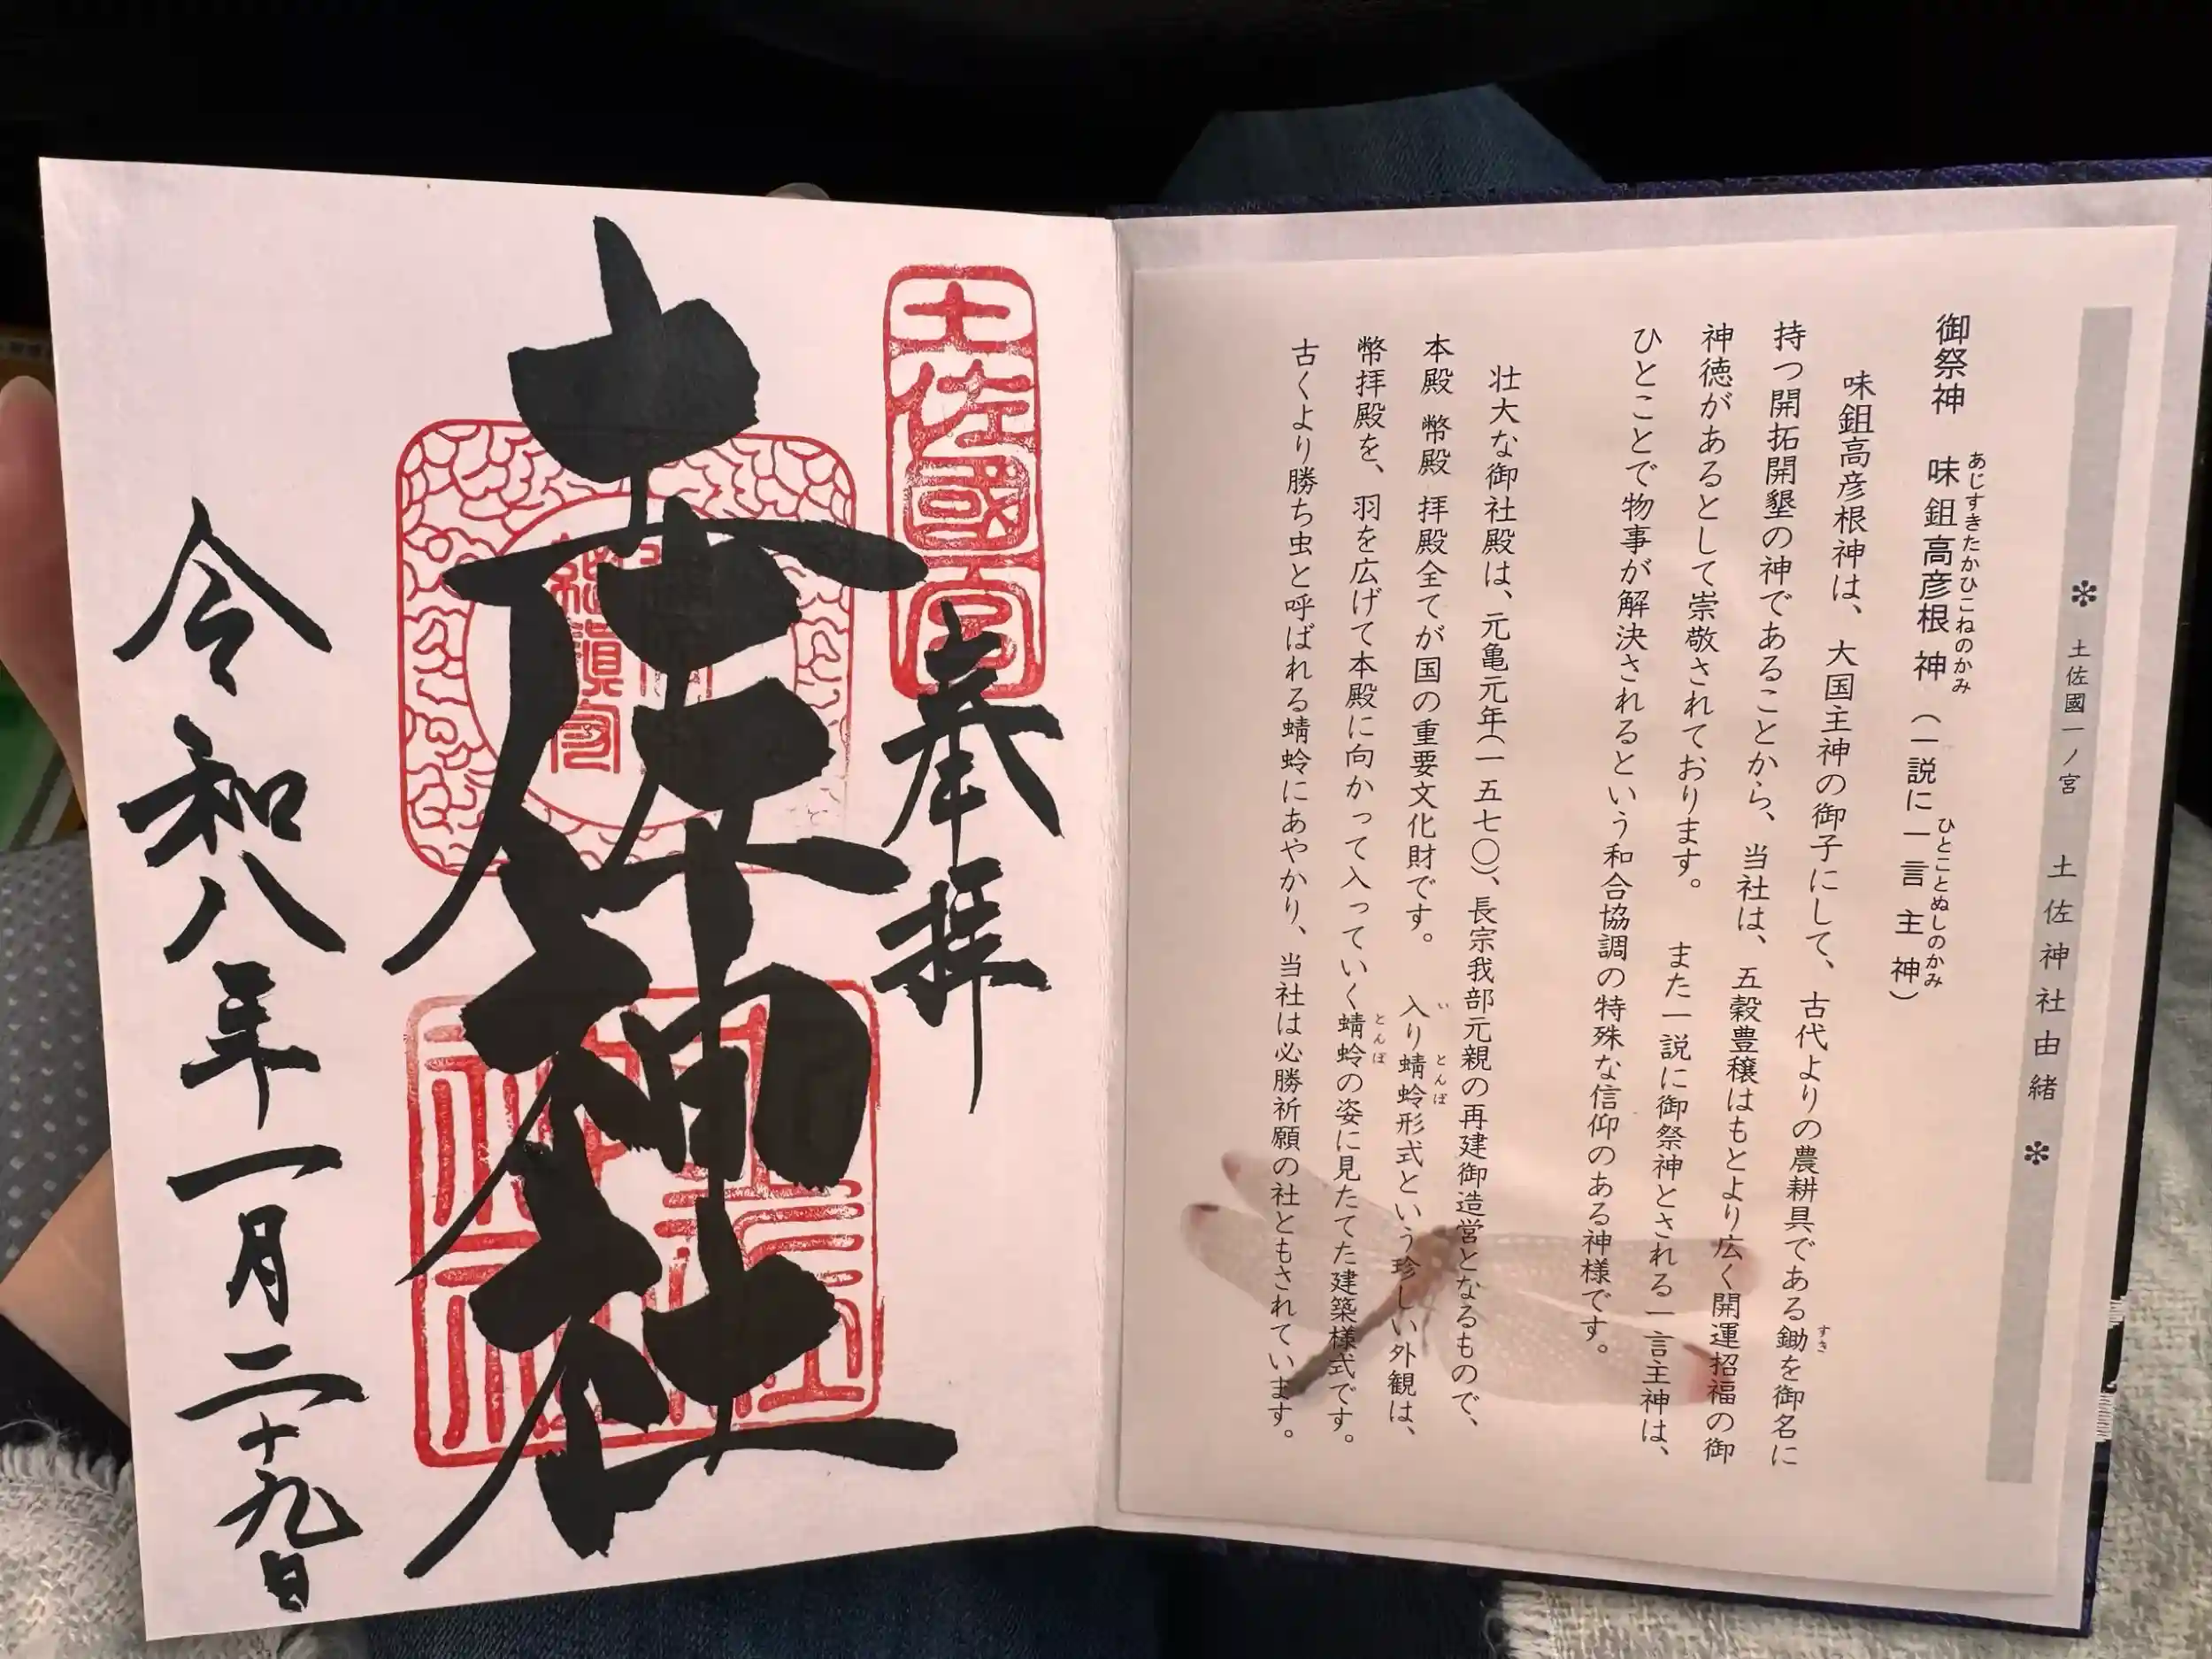 ＊ 土佐國一ノ宮 土佐神社由緒 ＊
御祭神 味鉏高彦根神（一説に一言主神）
あじすきたかひこねのかみ
ひとことぬしのかみ
味鉏高彦根神は、大国主神の御子にして、古代よりの農耕具である鋤を御名に
すき
持つ開拓開墾の神であることから、当社は、五穀豊穣はもとより広く開運招福の御
神徳があるとして崇敬されております。 また一説に御祭神とされる一言主神は、
ひとことで物事が解決されるという和合協調の特殊な信仰のある神様です。
壮大な御社殿は、元亀元年（一五七〇）、長宗我部元親の再建御造営となるもので、
本殿 幣殿 拝殿全てが国の重要文化財です。 入り蜻蛉形式という珍しい外観は、
い
とんぼ
幣拝殿を、羽を広げて本殿に向かって入っていく蜻蛉の姿に見たてた建築様式です。
とんぼ
古くより勝ち虫と呼ばれる蜻蛉にあやかり、当社は必勝祈願の社ともされています。
土佐國一宮
奉拝
土佐神社
土佐神社
令和八年一月二十九日